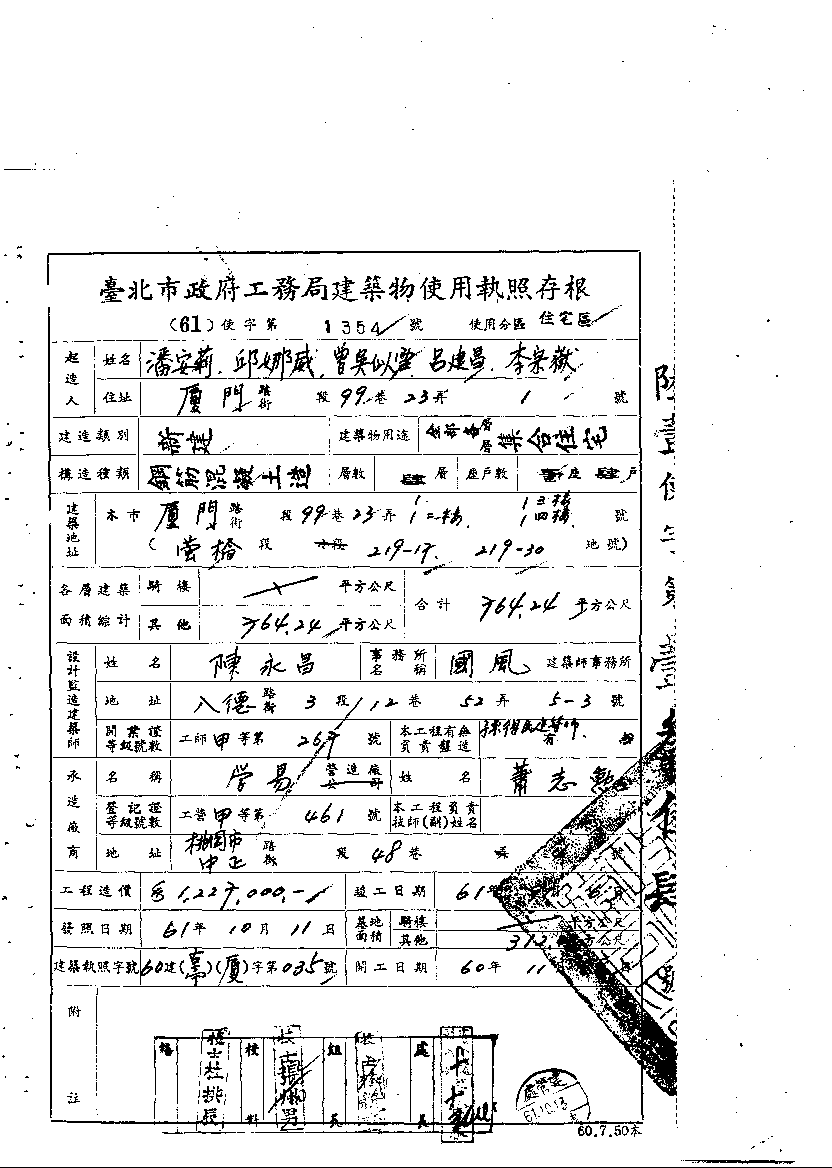 臺北市政府工務局建築物使用執照存根
(61)使字第 1354 號 使用分區 住宅區
起造人 姓名 潘安莉. 邱娜威. 曾吳似雲. 呂建昌. 李宗嶽
住址 廈門 路街 段 99 巷 23 弄 1 號
建造類別 新建 建築物用途 全部各層層 集合住宅
構造種類 鋼筋混凝土造 層數 肆層 座戶數 壹座 肆戶
建築地址 本市 廈門 路街 段 99 巷 23 弄 1 1二樓. 1三樓 1四樓 號
( 螢橋 段 小段 219-17. 219-30 地號)
各層建築面積綜計 騎樓 平方公尺 合計 764.24 平方公尺
其他 764.24 平方公尺
設計監造建築師 姓名 陳永昌 事務所名稱 國風 建築師事務所
地址 八德 路街 3 段 112 巷 52 弄 5-3 號
開業證等級號數 工師甲等第 267 號 本工程有無負責監造 有
承造廠商 名稱 學易 營造廠公司 姓名 蕭志
登記證等級號數 工營甲等第 461 號 本工程負責技師(副)姓名
地址 桃園市中正 路街 段 48 巷 弄 號
工程造價 1,227,000.- 竣工日期 61年
發照日期 61年 10月 11日 基地面積 騎樓 平方公尺
其他 312. 平方公尺
建築執照字號 60建( )(廈)字第035號 開工日期 60年 11
附註
組長 處長
61.10.13
60.7.50本